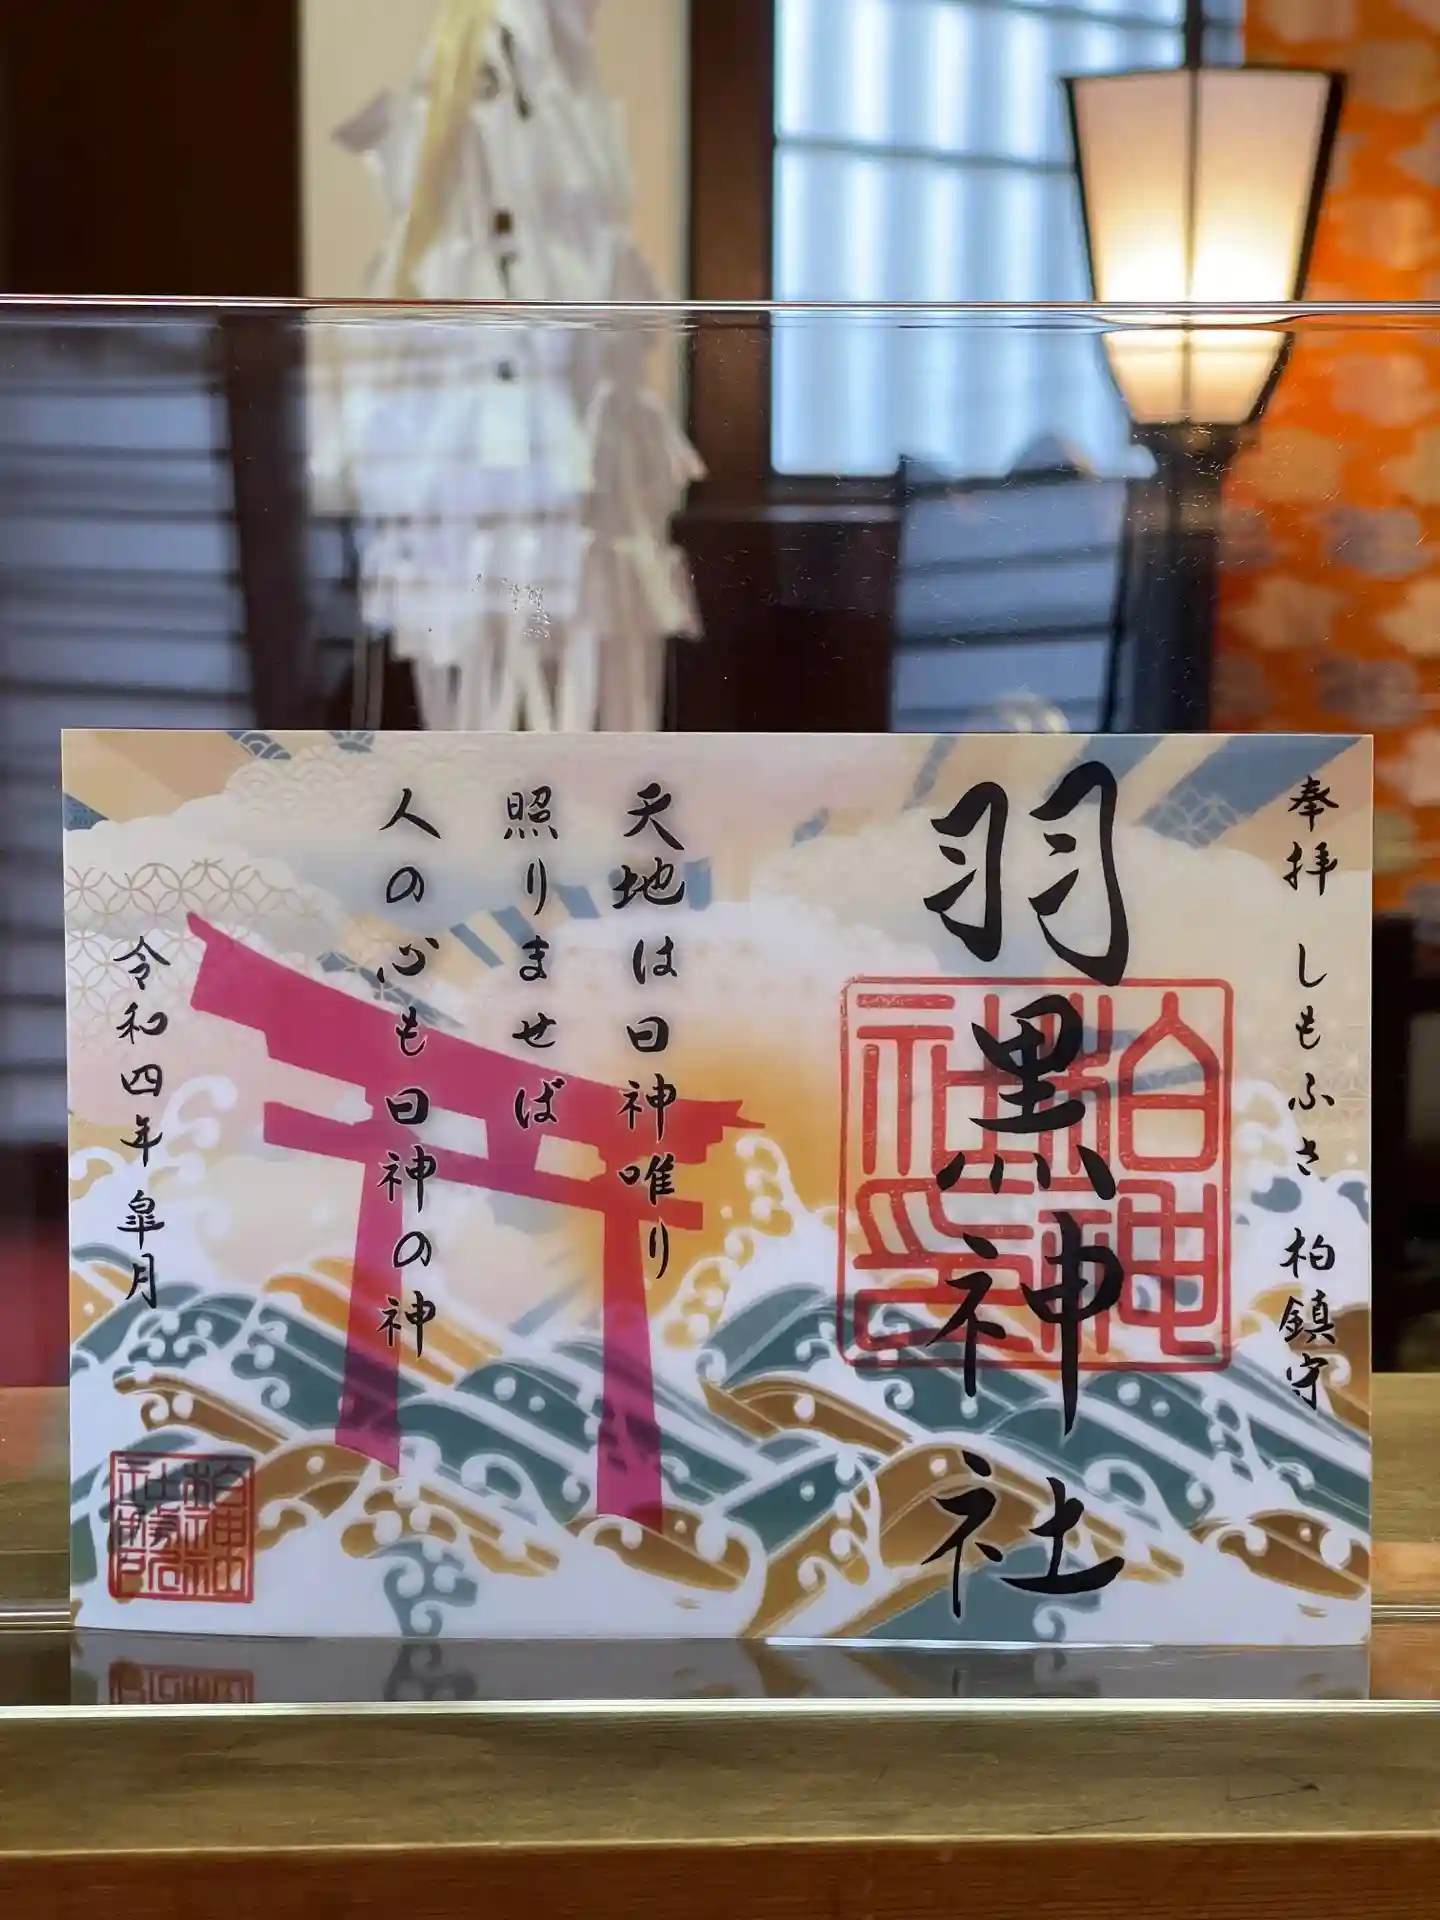 奉拝 しもふさ 柏鎮守
羽黒神社
柏神社印
天地は日神唯り
照りませば
人の心も日神の神
令和四年 皐月